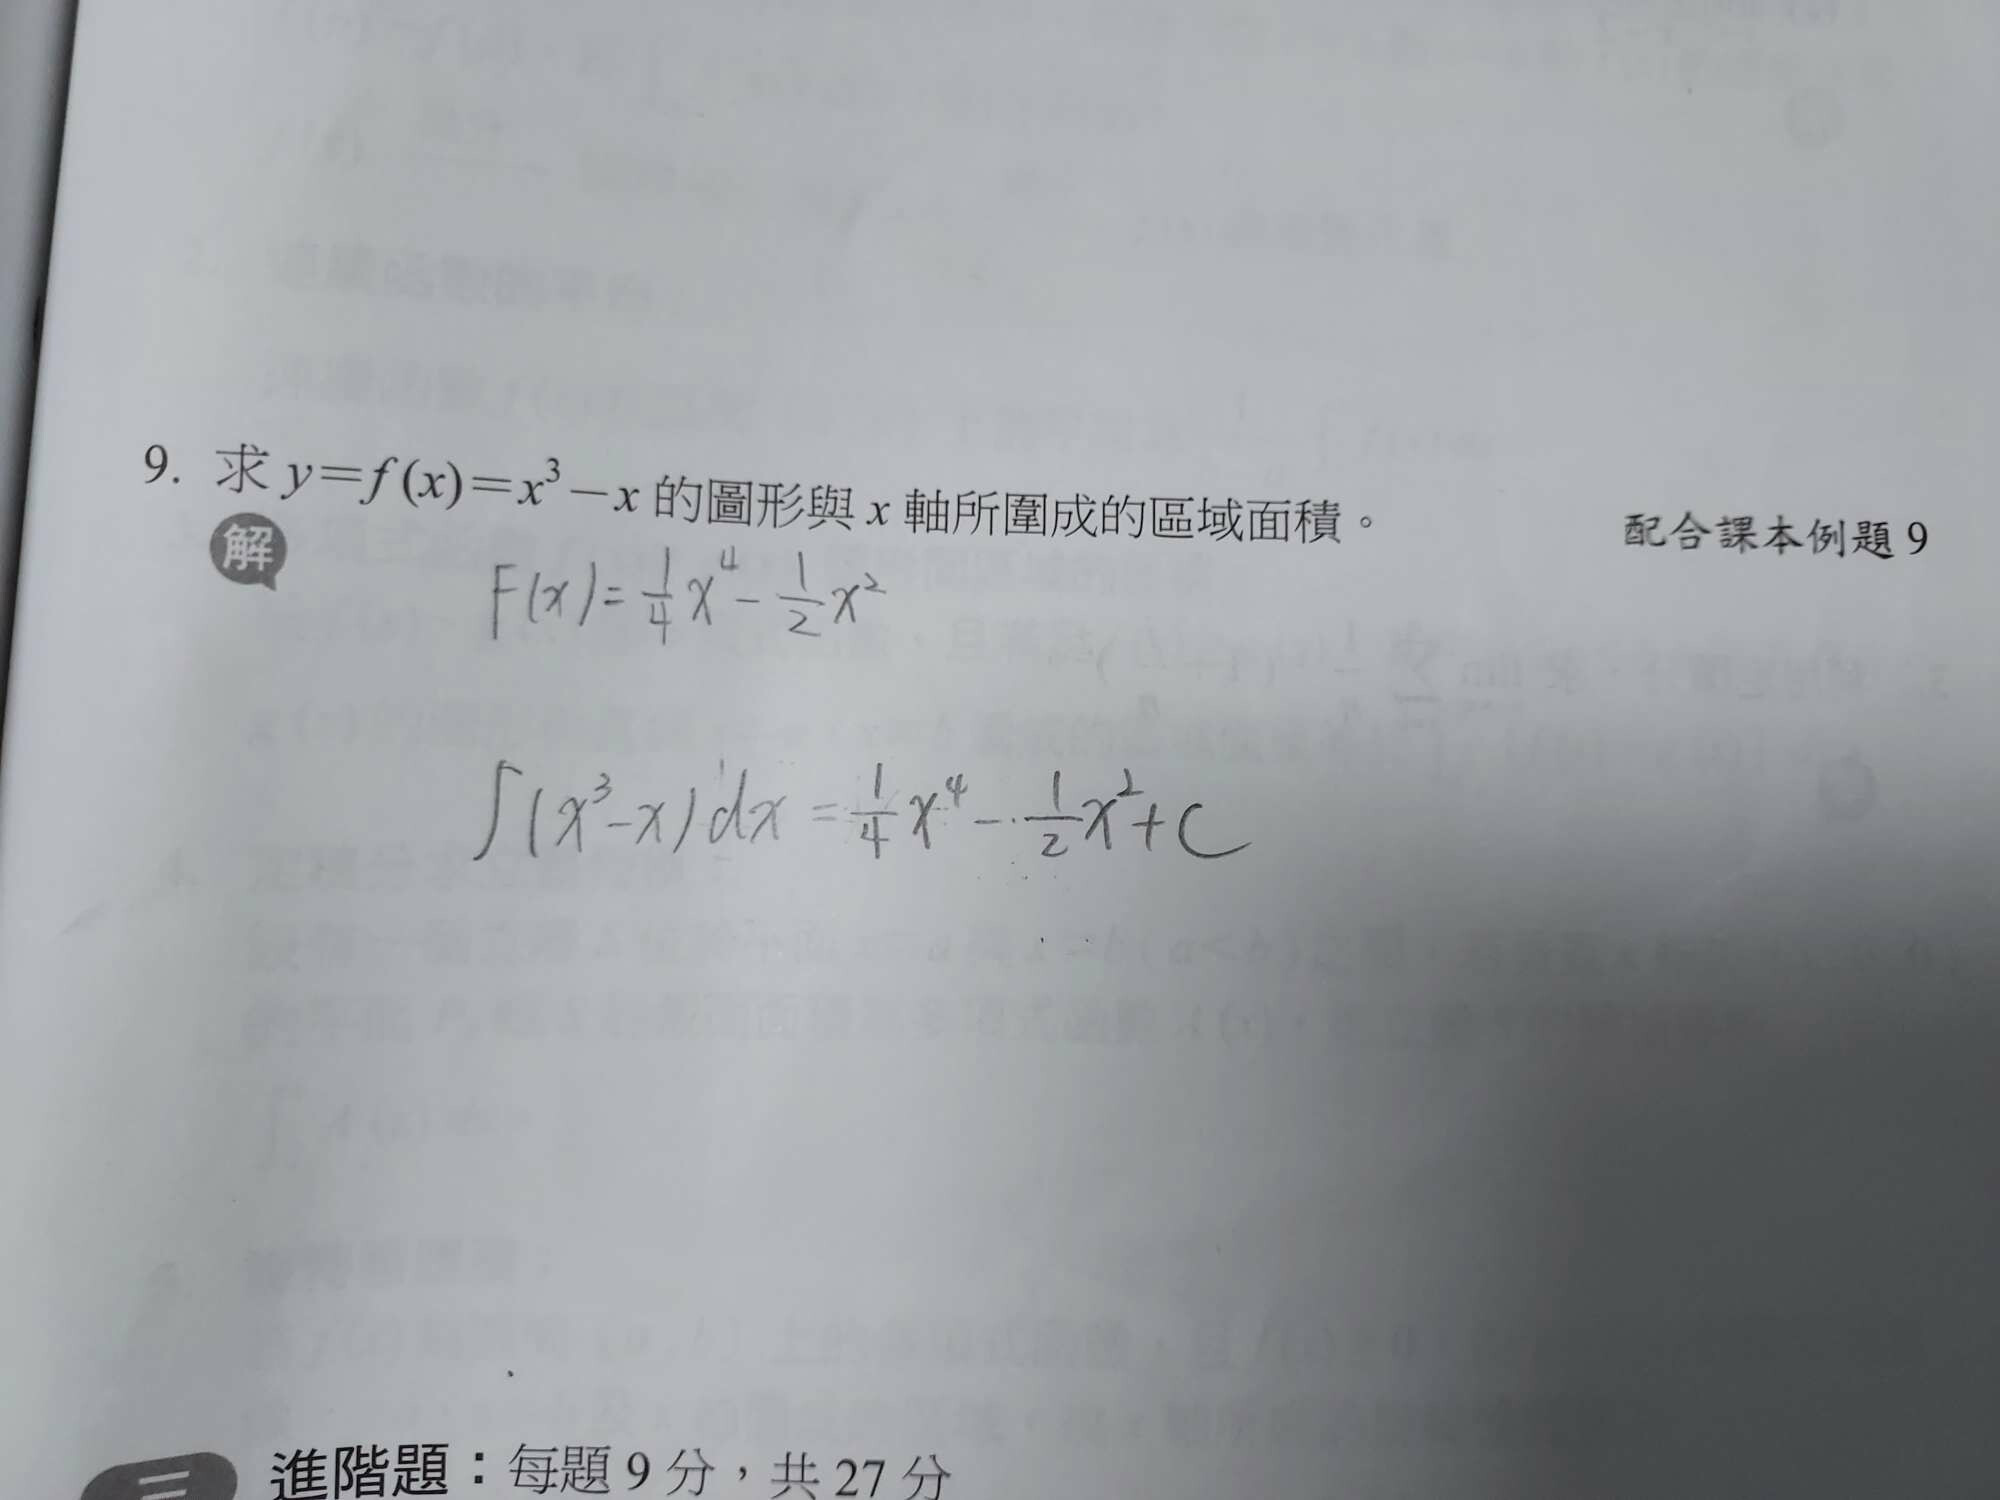 9. 求 y＝f(x)＝x³－x 的圖形與 x 軸所圍成的區域面積。
配合課本例題 9
解
F(x)=1/4 x⁴-1/2 x²
∫(x³-x)dx=1/4 x⁴-1/2 x²+C
三 進階題：每題 9 分，共 27 分